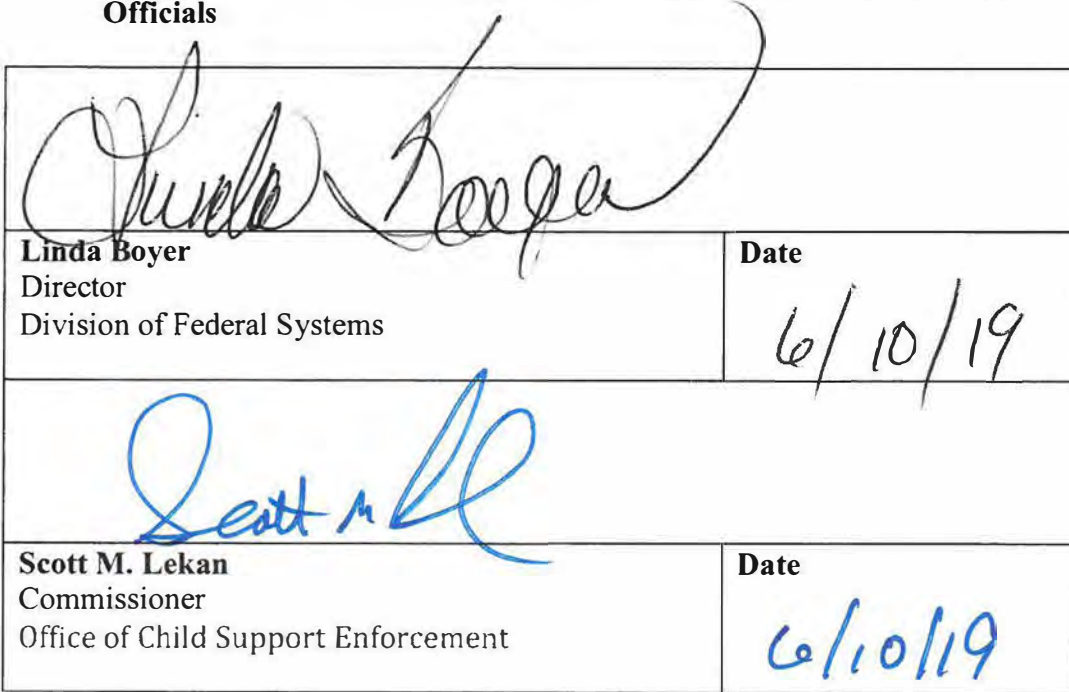 Officials
Linda Boyer
Linda Boyer
Director
Division of Federal Systems
Date
6/10/19
Scott M
Scott M. Lekan
Commissioner
Office of Child Support Enforcement
Date
6/10/19